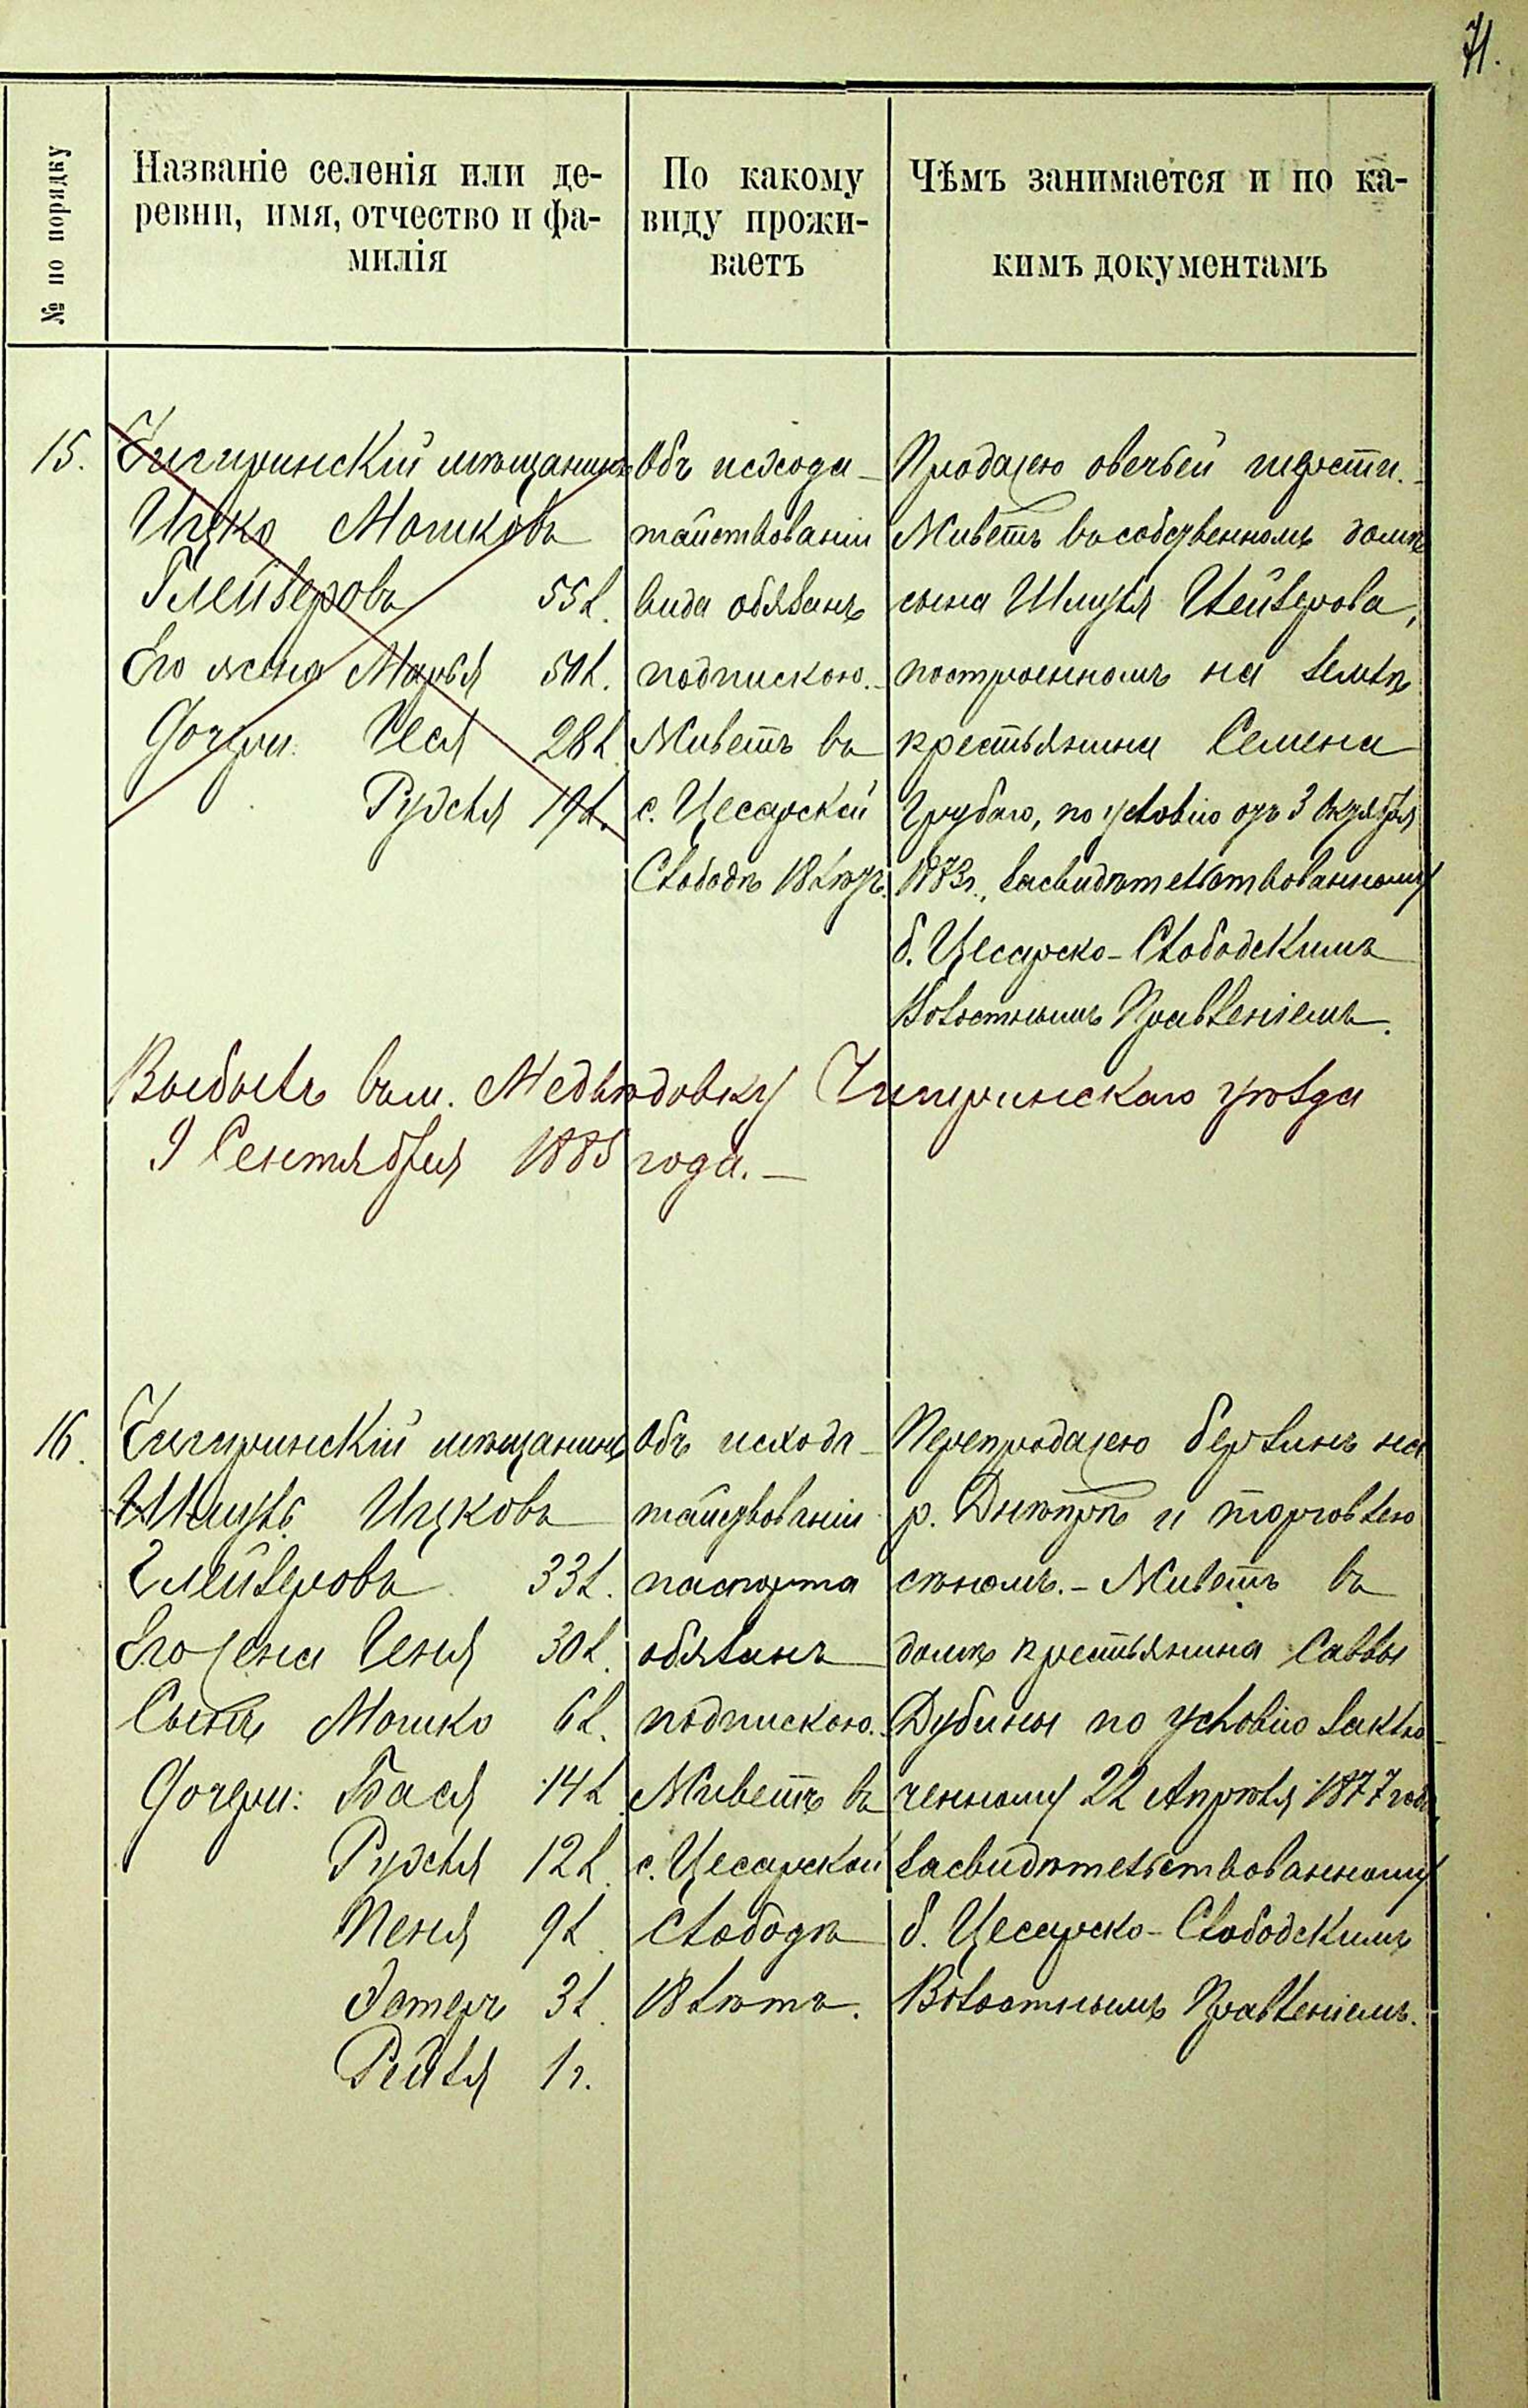 71.
№ по порядку
Названіе селенія или де-
ревни, имя, отчество и фа-
милія
По какому
виду прожи-
ваетъ
Чѣмъ занимается и по ка-
кимъ документамъ
15.
Чигиринскій мѣщанинъ
Ицко Мошковъ
Глейзеровъ 55 л.
Его жена Марья 50 л.
Дочери: Песя 28 л.
Рухля 19 л.
Объ исхода-
тайствованіи
вида обязанъ
подпискою.-
Живетъ въ
с. Цесарской
Слободѣ 18 лѣтъ.
Продажею овечьей шерсти.-
Живетъ въ собственномъ домѣ
сына Шмуля Глейзерова,
построенномъ на землѣ
крестьянина Семена
Грубаго, по условію отъ 3 Октября
1873 г., засвидѣтельствованному
б. Цесарско-Слободскимъ
Волостнымъ Правленіемъ.
Выбылъ въ м. Медвѣдовку Чигиринскаго уѣзда
9 Сентября 1885 года.-
16.
Чигиринскій мѣщанинъ
Шмуль Ицковъ
Глейзеровъ 33 л.
Его жена Геня 30 л.
Сынъ Мошко 6 л.
Дочери: Бася 14 л.
Рухля 12 л.
Неня 9 л.
Эстеръ 3 л.
Рейзя 1 г.
Объ исхода-
тайствованіи
паспорта
обязанъ
подпискою.-
Живетъ въ
с. Цесарской
Слободѣ
18 лѣтъ.
Перепродажею берлинъ на
р. Днѣпрѣ и торговлею
сѣномъ.- Живетъ въ
домѣ крестьянина Саввы
Дубины по условію заклю-
ченному 22 Апрѣля 1877 года,
засвидѣтельствованному
б. Цесарско-Слободскимъ
Волостнымъ Правленіемъ.